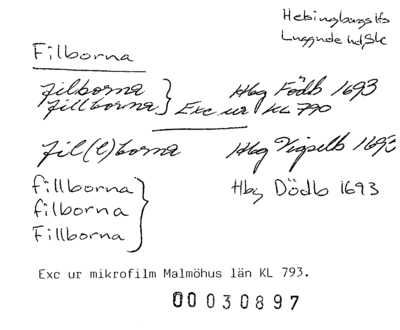 Helsingborgs lfs
Luggude hd, Sk
Filborna
filborna } Hbg Födb 1693
fillborna } Exc ur KL 790
fil(l)borna Hbg Vigselb 1693
fillborna } Hbg Dödb 1693
filborna
Fillborna
Exc ur mikrofilm Malmöhus län KL 793.
00030897